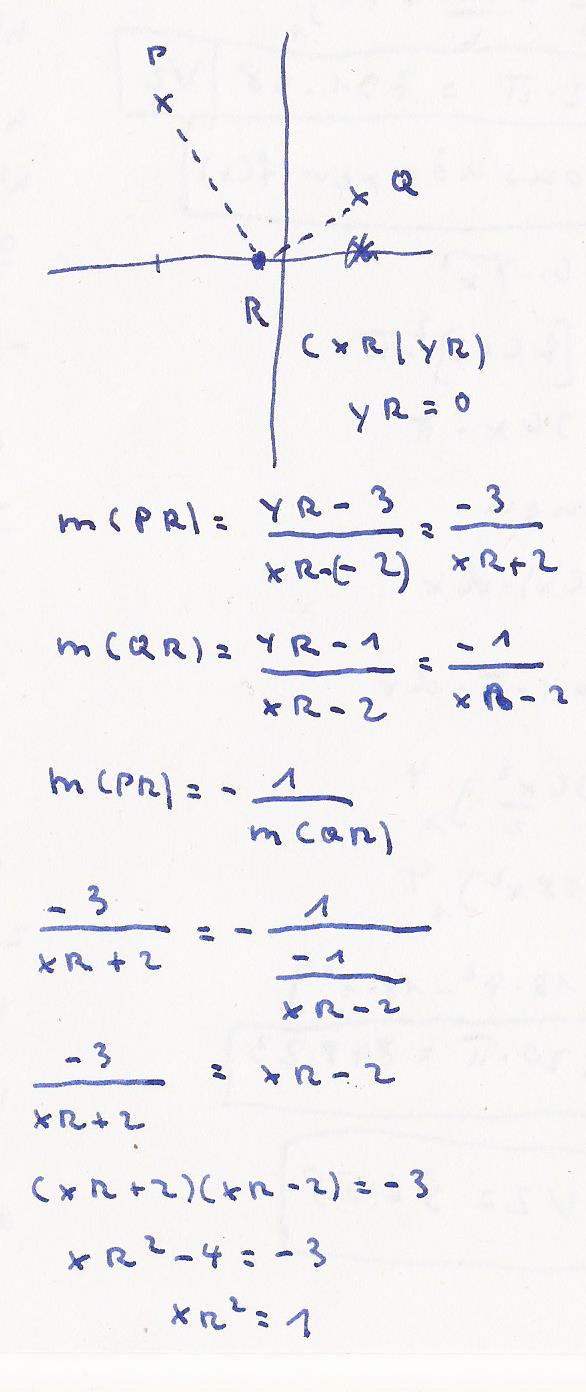 P
Q
R
(xR|yR)
yR = 0
m(PR) = (yR - 3)/(xR-(-2)) = -3/(xR+2)
m(QR) = (yR - 1)/(xR - 2) = -1/(xR - 2)
m(PR) = - 1/m(QR)
-3/(xR + 2) = - 1/(-1/(xR - 2))
-3/(xR + 2) = xR - 2
(xR + 2)(xR - 2) = -3
xR² - 4 = -3
xR² = 1